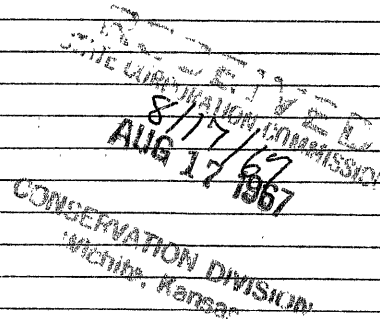 RECEIVED
STATE CORPORATION COMMISSION
8/17/67
AUG 17 1967
CONSERVATION DIVISION
Wichita, Kansas